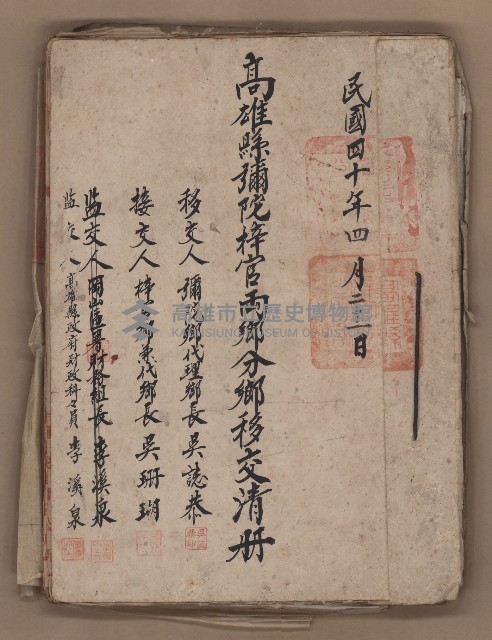 民國四十年四月二一日
高雄縣彌陀梓官兩鄉分鄉移交清册
移交人 彌陀鄉代理鄉長 吳誌恭
接交人 梓官鄉兼代鄉長 吳珊瑚
監交人 岡山區署財務組長 李溪泉
監交人 高雄縣政府財政科々員 李溪泉
高雄市立歷史博物館
KAOHSIUNG MUSEUM OF HISTORY